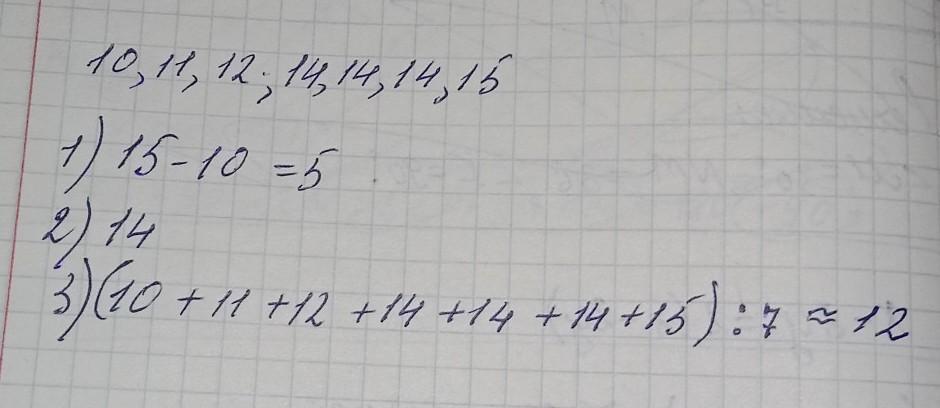 10, 11, 12; 14, 14, 14, 15
1) 15 - 10 = 5
2) 14
3) (10 + 11 + 12 + 14 + 14 + 14 + 15) : 7 ≈ 12